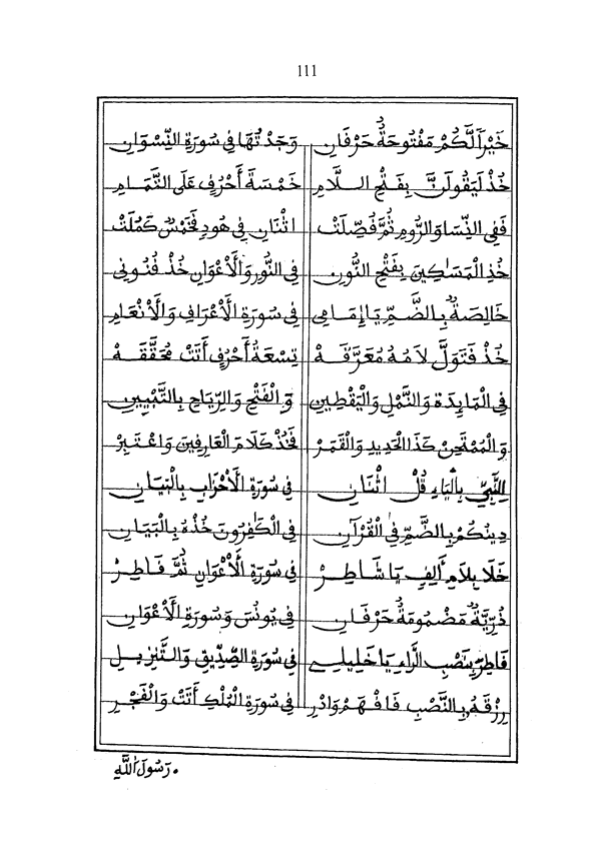 111
خَيْرًا لَّكُمْ مَفْتُوحَةٌ حَرْفَانِ وَجَدْتُهَا فِي سُورَةِ النِّسْوَانِ
خُذْ لَيَقُولَنَّ بِفَتْحِ اللَّامِ خَمْسَةَ أَحْرُفٍ عَلَى التَّمَامِ
فَفِي النِّسَا وَالرُّومِ ثُمَّ فُصِّلَتْ اثْنَانِ فِي هُودٍ فَخَمْسٌ كَمُلَتْ
خُذِ الْمَسَٰكِينَ بِفَتْحِ النُّونِ فِي النُّورِ وَالْأَعْوَانِ خُذْ فُنُونِي
خَالِصَةٌ بِالضَّمِّ يَا إِمَامِي فِي سُورَةِ الْأَعْرَافِ وَالْأَنْعَامِ
خُذْ فَتَوَلَّ لَامُهُ مُعَرَّقَهْ تِسْعَةُ أَحْرُفٍ أَتَتْ مُحَقَّقَهْ
فِي الْمَايِدَةِ وَالنَّمْلِ وَالْيَقْطِينِ وَالْفَتْحِ وَالرِّيَاحِ بِالتَّبْيِينِ
وَالْمُمْتَحِنْ كَذَا الْحَدِيدِ وَالْقَمَرْ فَخُذْ كَلَامَ الْعَارِفِينَ وَاعْتَبِرْ
لِلنَّبِيِّ بِالْيَاءِ قُلْ اثْنَانِ فِي سُورَةِ الْأَحْزَابِ بِالْبَيَانِ
دِينُكُمْ بِالضَّمِّ فِي الْقُرْآنِ فِي الْكَٰفِرُونَ خُذْهُ بِالْبَيَانِ
خَلَا بِلَامِ أَلِفٍ يَا شَاطِرْ فِي سُورَةِ الْأَعْوَانِ ثُمَّ فَاطِرْ
ذُرِّيَّةٌ مَضْمُومَةٌ حَرْفَانِ فِي يُونُسَ وَسُورَةِ الْأَعْوَانِ
فَاطِرَ بِنَصْبِ الرَّاءِ يَا خَلِيلِي فِي سُورَةِ الصِّدِّيقِ وَالتَّنْزِيلِ
رِزْقَهُ بِالنَّصْبِ فَافْهَمْ وَادْرِ فِي سُورَةِ الْمُلْكِ أَتَتْ وَالْفَجْرِ
رَسُولَ اللَّهِ